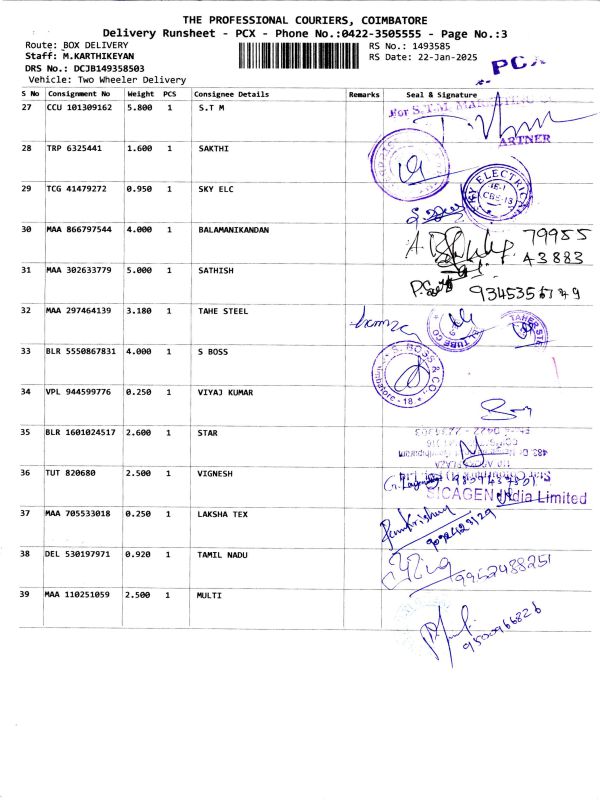 THE PROFESSIONAL COURIERS, COIMBATORE
Delivery Runsheet - PCX - Phone No.:0422-3505555 - Page No.:3
Route: BOX DELIVERY
RS No.: 1493585
Staff: M.KARTHIKEYAN
RS Date: 22-Jan-2025
DRS No.: DCJB149358503
Vehicle: Two Wheeler Delivery
S No Consignment No Weight PCS Consignee Details Remarks Seal & Signature
27 CCU 101309162 5.800 1 S.T M
For S.T.M. MARKETING
ARTNER
28 TRP 6325441 1.600 1 SAKTHI
29 TCG 41479272 0.950 1 SKY ELC
SKY ELECTRIC
CBE-13
30 MAA 866797544 4.000 1 BALAMANIKANDAN
79955
43883
31 MAA 302633779 5.000 1 SATHISH
32 MAA 297464139 3.180 1 TAHE STEEL
33 BLR 5550867831 4.000 1 S BOSS
S. BOSS & CO.
18
34 VPL 944599776 0.250 1 VIYAJ KUMAR
35 BLR 1601024517 2.600 1 STAR
36 TUT 820680 2.500 1 VIGNESH
SICAGEN India Limited
37 MAA 705533018 0.250 1 LAKSHA TEX
Ramkrishna
9092423129
38 DEL 530197971 0.920 1 TAMIL NADU
9952488251
39 MAA 110251059 2.500 1 MULTI
9500966826